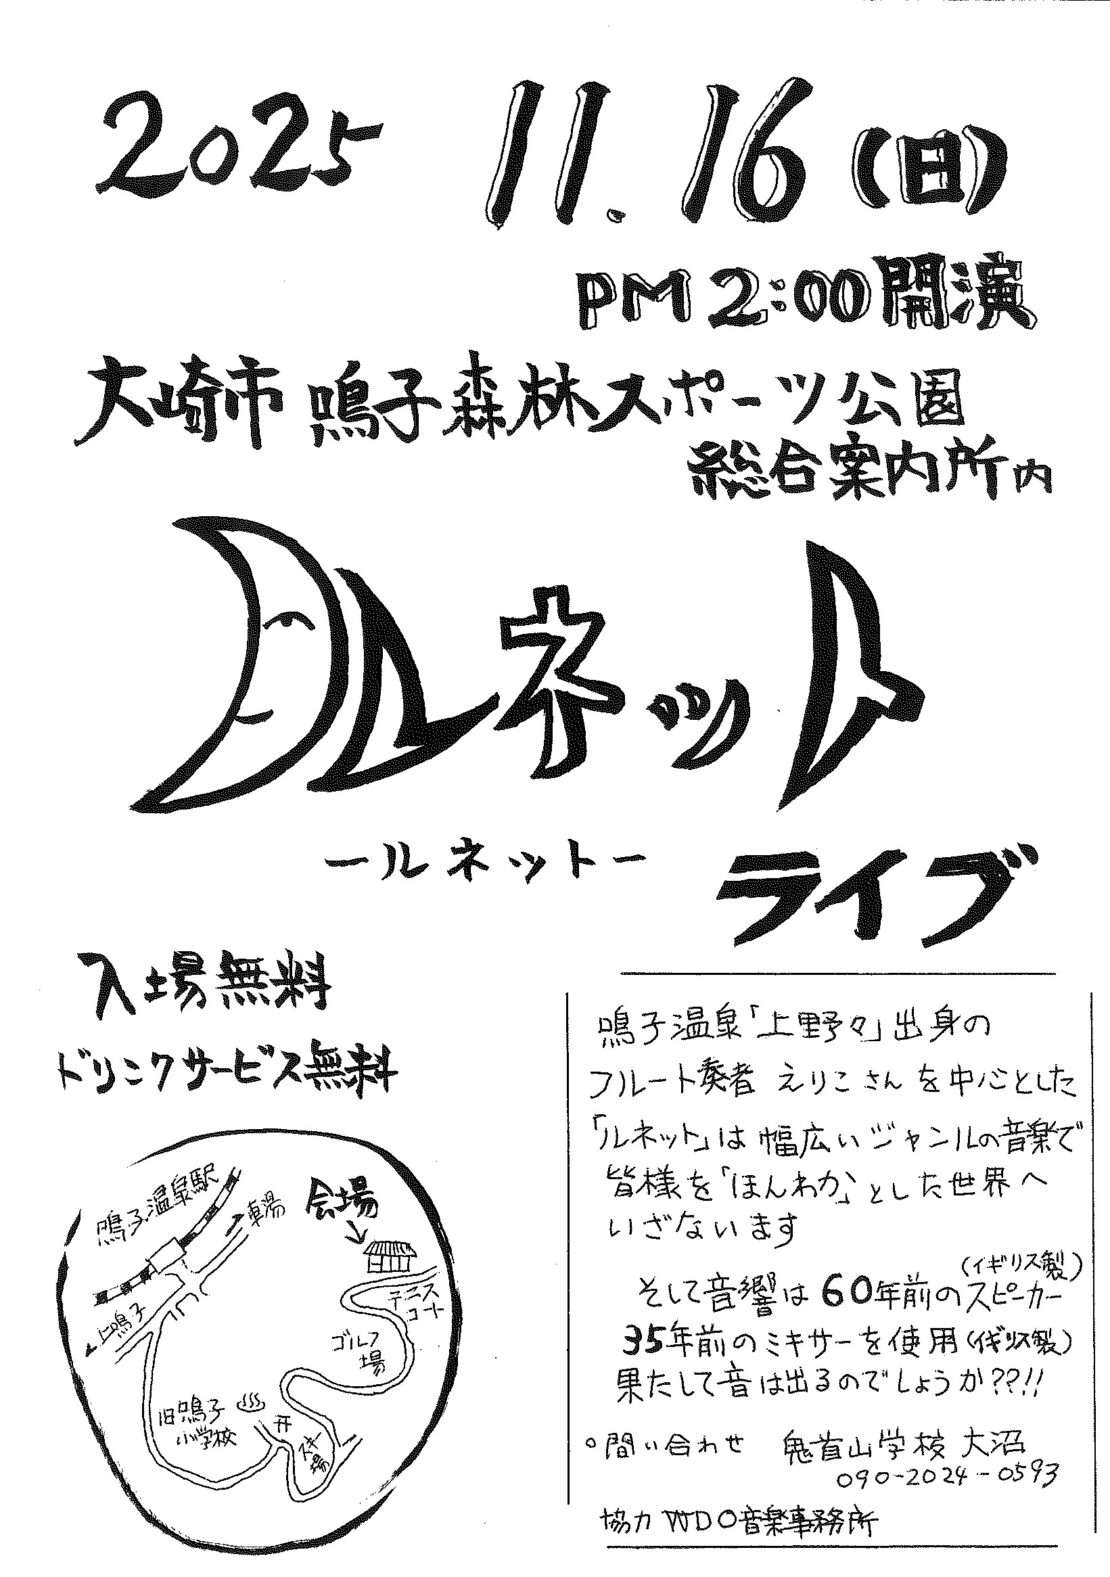 2025 11.16(日)
PM2:00開演
大崎市 鳴子森林スポーツ公園
総合案内所内
ルネット
ールネットー
ライブ
入場無料
ドリンクサービス無料
鳴子温泉「上野々」出身の
フルート奏者 えりこさんを中心とした
「ルネット」は幅広いジャンルの音楽で
皆様を「ほんわか」とした世界へ
いざないます
そして音響は60年前のスピーカー
(イギリス製)
35年前のミキサーを使用(イギリス製)
果たして音は出るのでしょうか??!!
○問い合わせ 鬼首山学校 大沼
090-2024-0593
協力 WDO音楽事務所
鳴子温泉駅
車湯
会場
上鳴子
テニス
コート
ゴルフ
場
旧鳴子
小学校
スキー
場